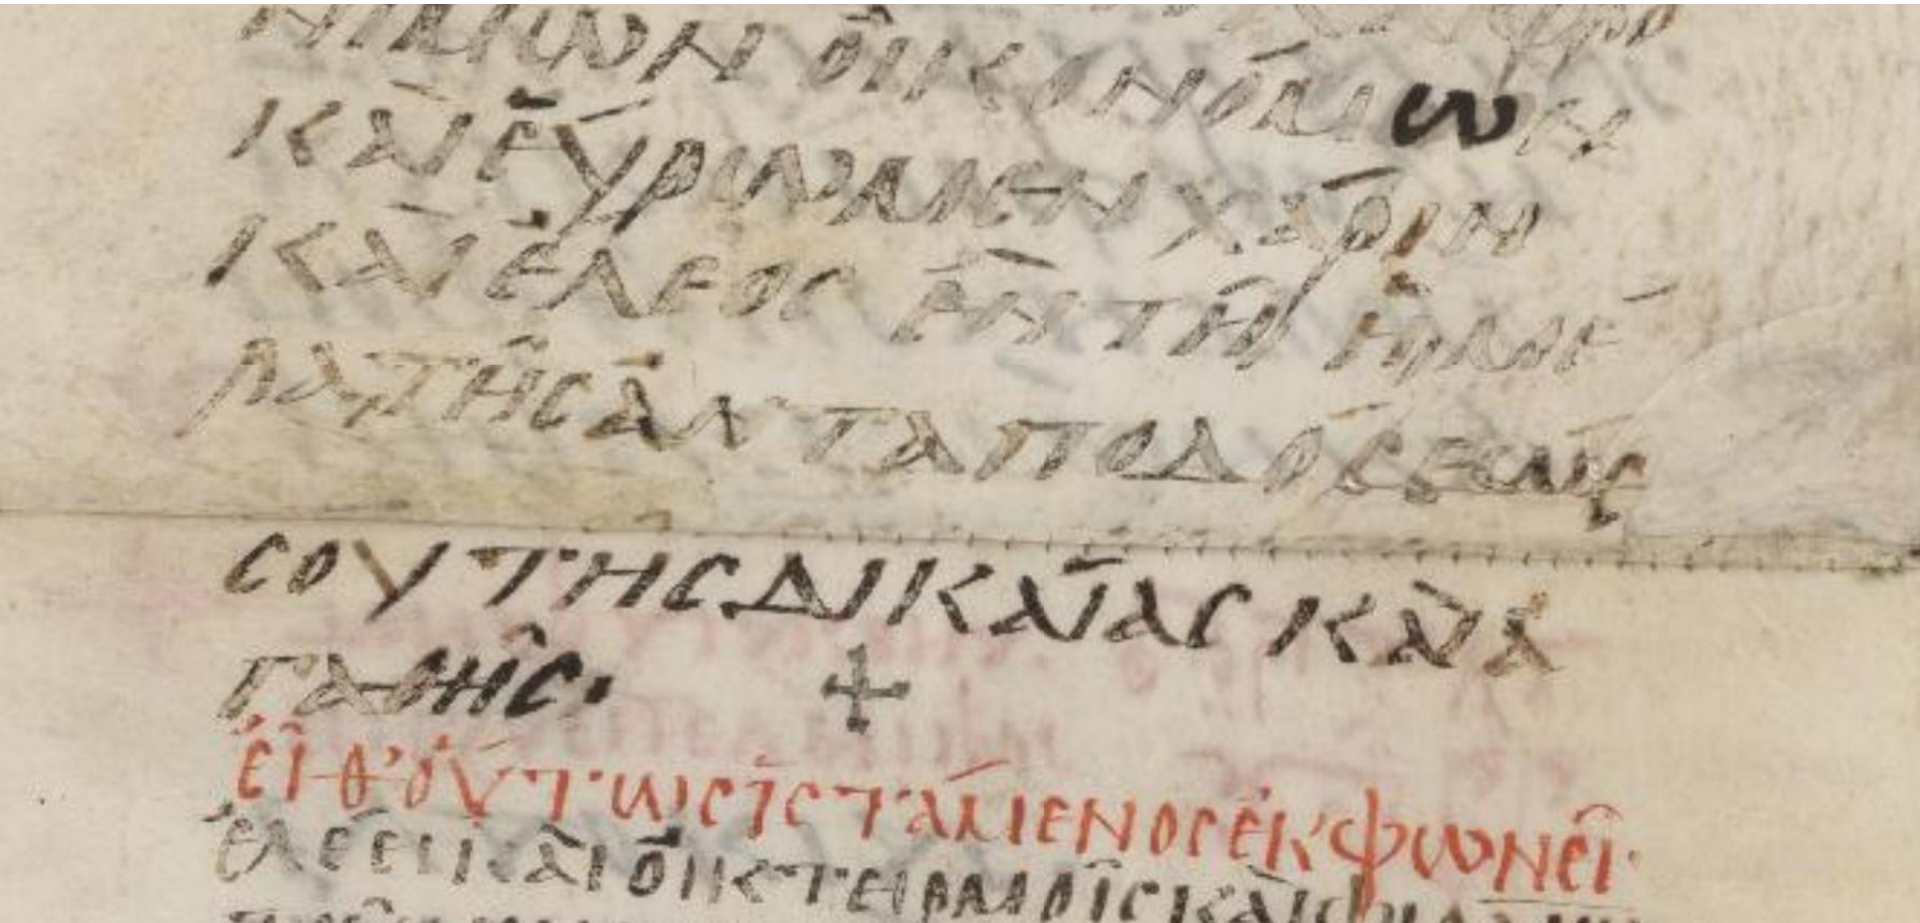 νίμων οἰκονόμων
καὶ εὕρωμεν χάριν
καὶ ἔλεος ἐν τῇ ἡμέ
ρα τῆς ἀνταποδόσεώς
σου τῆς δικαίας καὶ ἀ
γαθῆς. +
εἶθ' οὕτως ἱστάμενος ἐκφωνεῖ·
ἐλέει καὶ οἰκτειρμοῖς καὶ